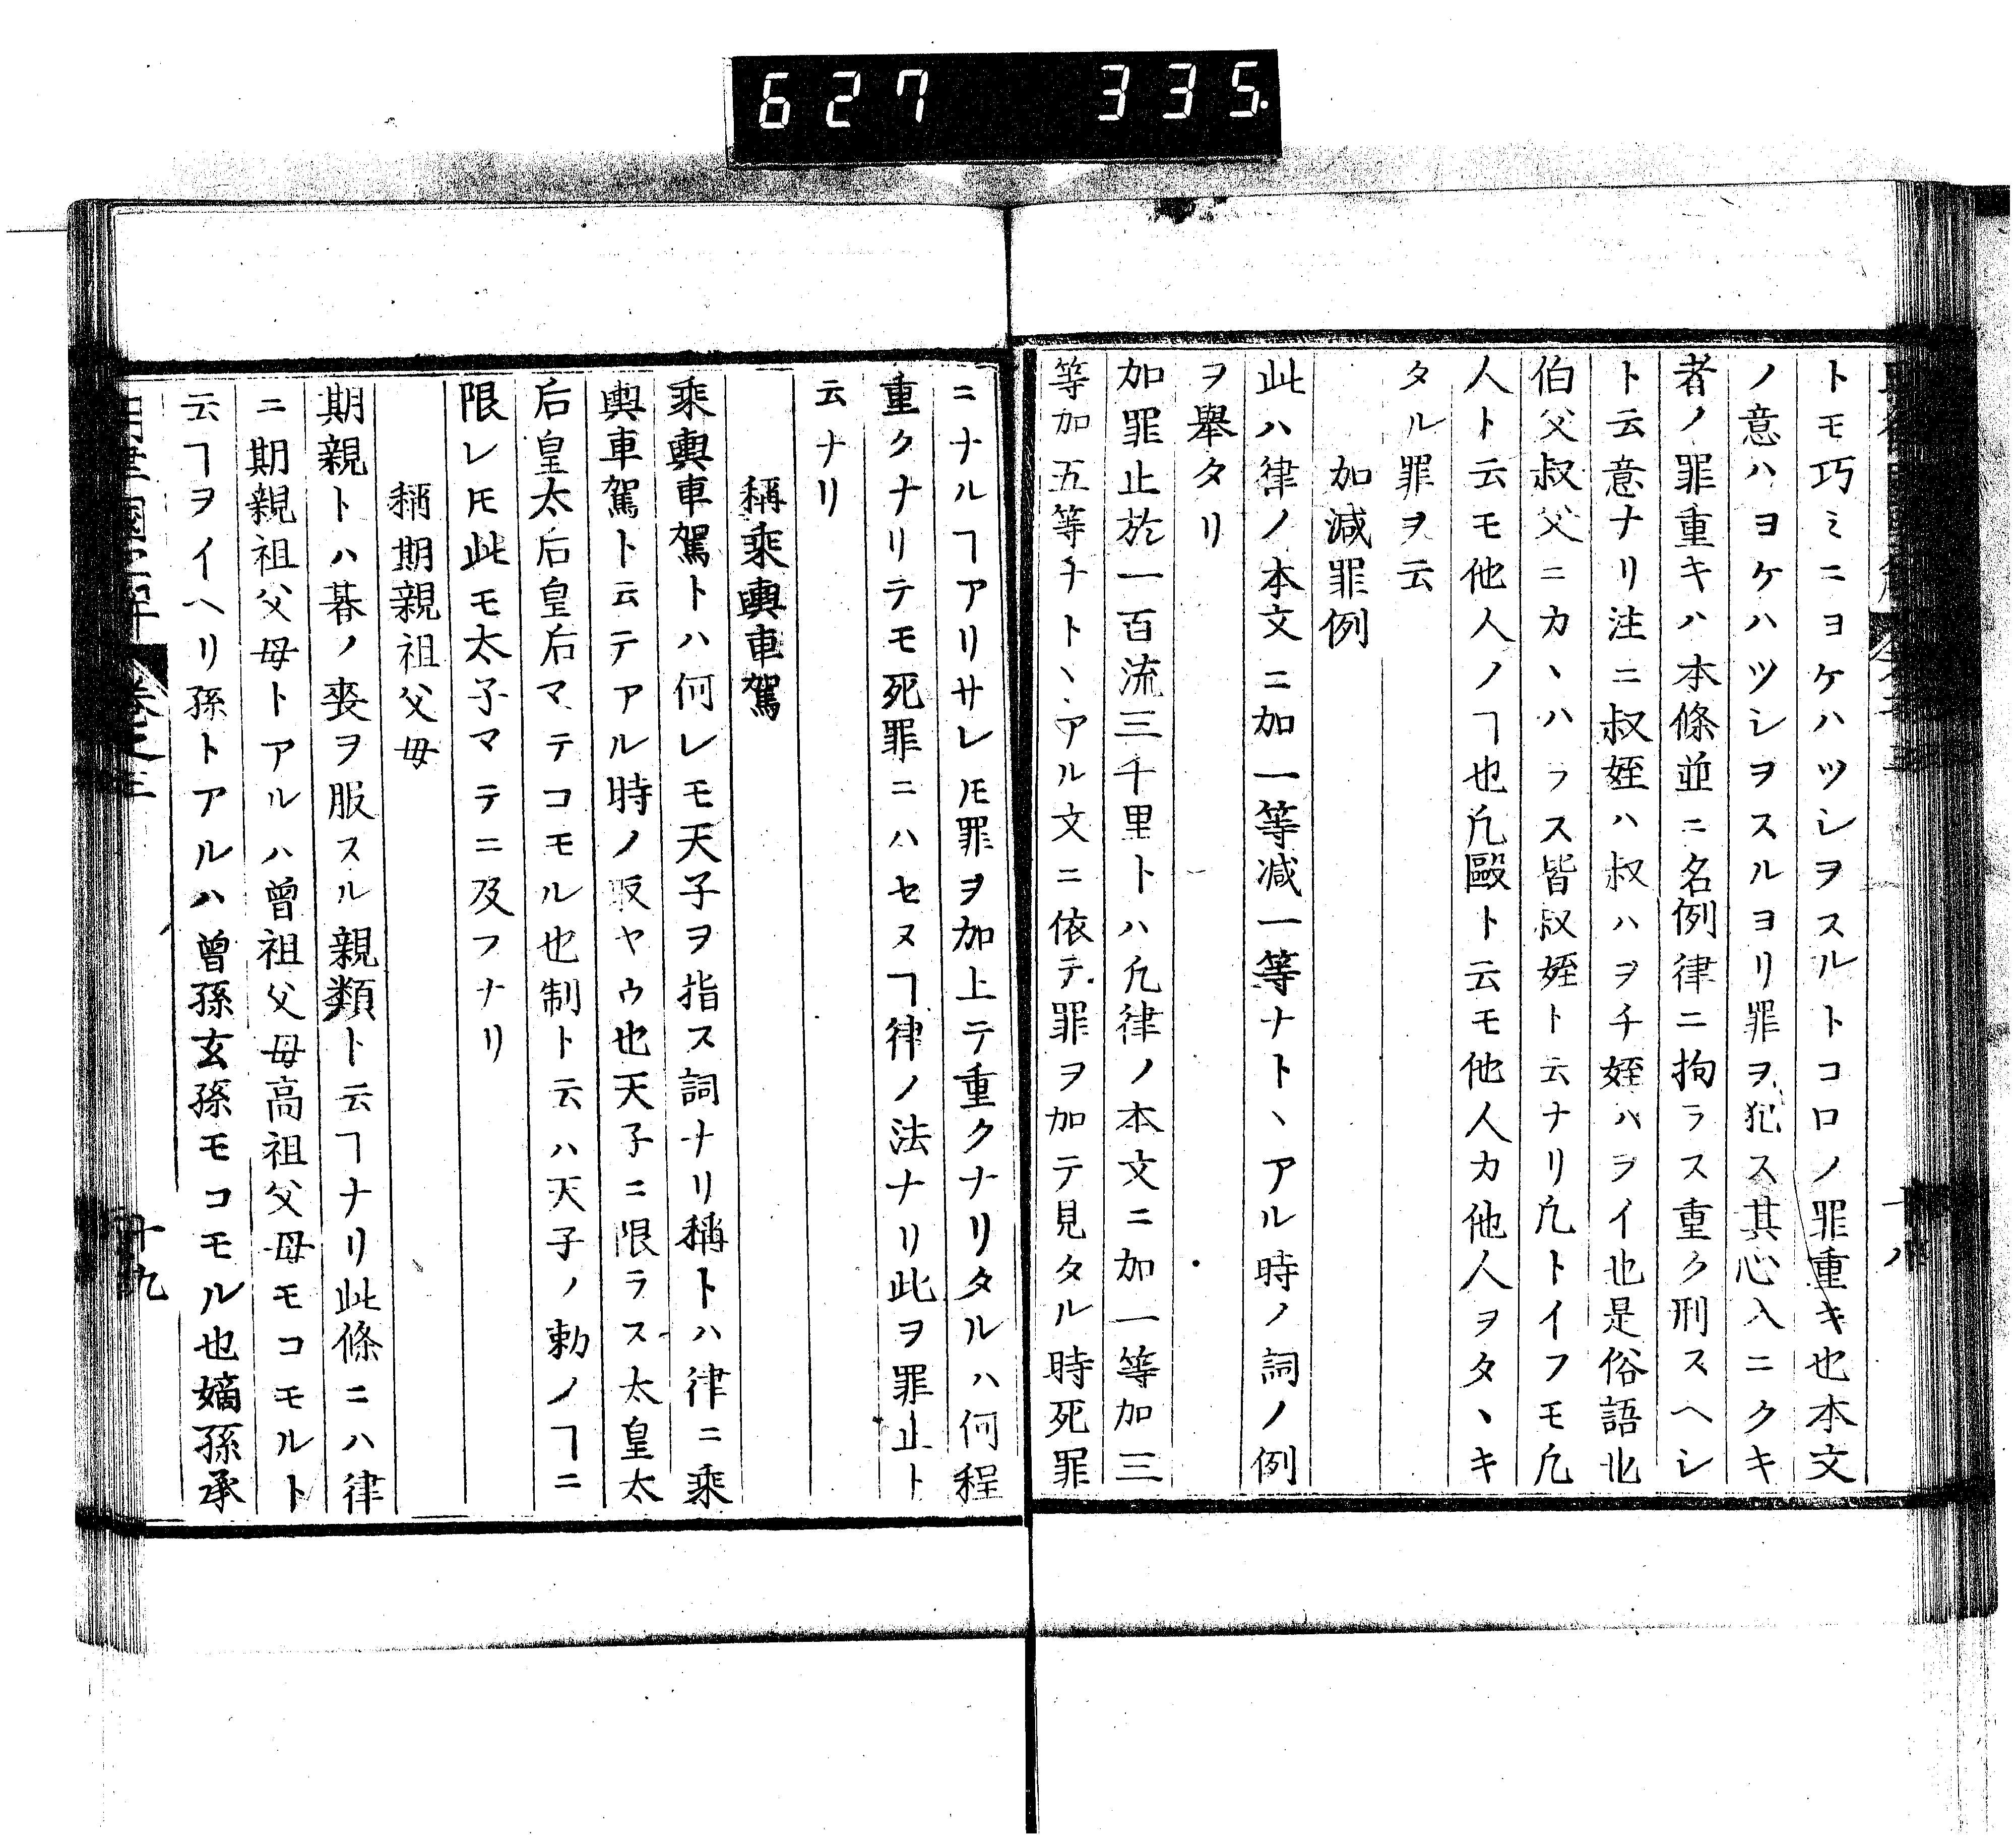 627 335
トモ巧ミニヨケハツシヲスルトコロノ罪重キ也本文
ノ意ハヨケハツシヲスルヨリ罪ヲ犯ス其心入ニクキ
者ノ罪重キハ本條並ニ名例律ニ拘ラス重ク刑スヘシ
ト云意ナリ注ニ叔姪ハ叔ハヲチ姪ハヲイ也是俗語也
伯父叔父ニカヽハラス皆叔姪ト云ナリ凢トイフモ凢
人ト云モ他人ノヿ也凢毆ト云モ他人カ他人ヲタヽキ
タル罪ヲ云
加減罪例
此ハ律ノ本文ニ加一等减一等ナトヽアル時ノ詞ノ例
ヲ舉タリ
加罪止於一百流三千里トハ凢律ノ本文ニ加一等加三
等加五等チトヽアル文ニ依テ罪ヲ加テ見タル時死罪
ニナルヿアリサレ𪜈罪ヲ加上テ重クナリタルハ何程
重クナリテモ死罪ニハセヌヿ律ノ法ナリ此ヲ罪止ト
云ナリ
稱乘輿車駕
乘輿車駕トハ何レモ天子ヲ指ス詞ナリ稱トハ律ニ乘
輿車駕ト云テアル時ノ㕝ヤウ也天子ニ限ラス太皇太
后皇太后皇后マテコモル也制ト云ハ天子ノ勅ノヿニ
限レ𪜈此モ太子マテニ及フナリ
稱期親祖父母
期親トハ朞ノ喪ヲ服スル親類ト云ヿナリ此條ニハ律
ニ期親祖父母トアルハ曾祖父母高祖父母モコモルト
云ヿヲイヘリ孫トアルハ曾孫玄孫モコモル也嫡孫承
卷之三 十九